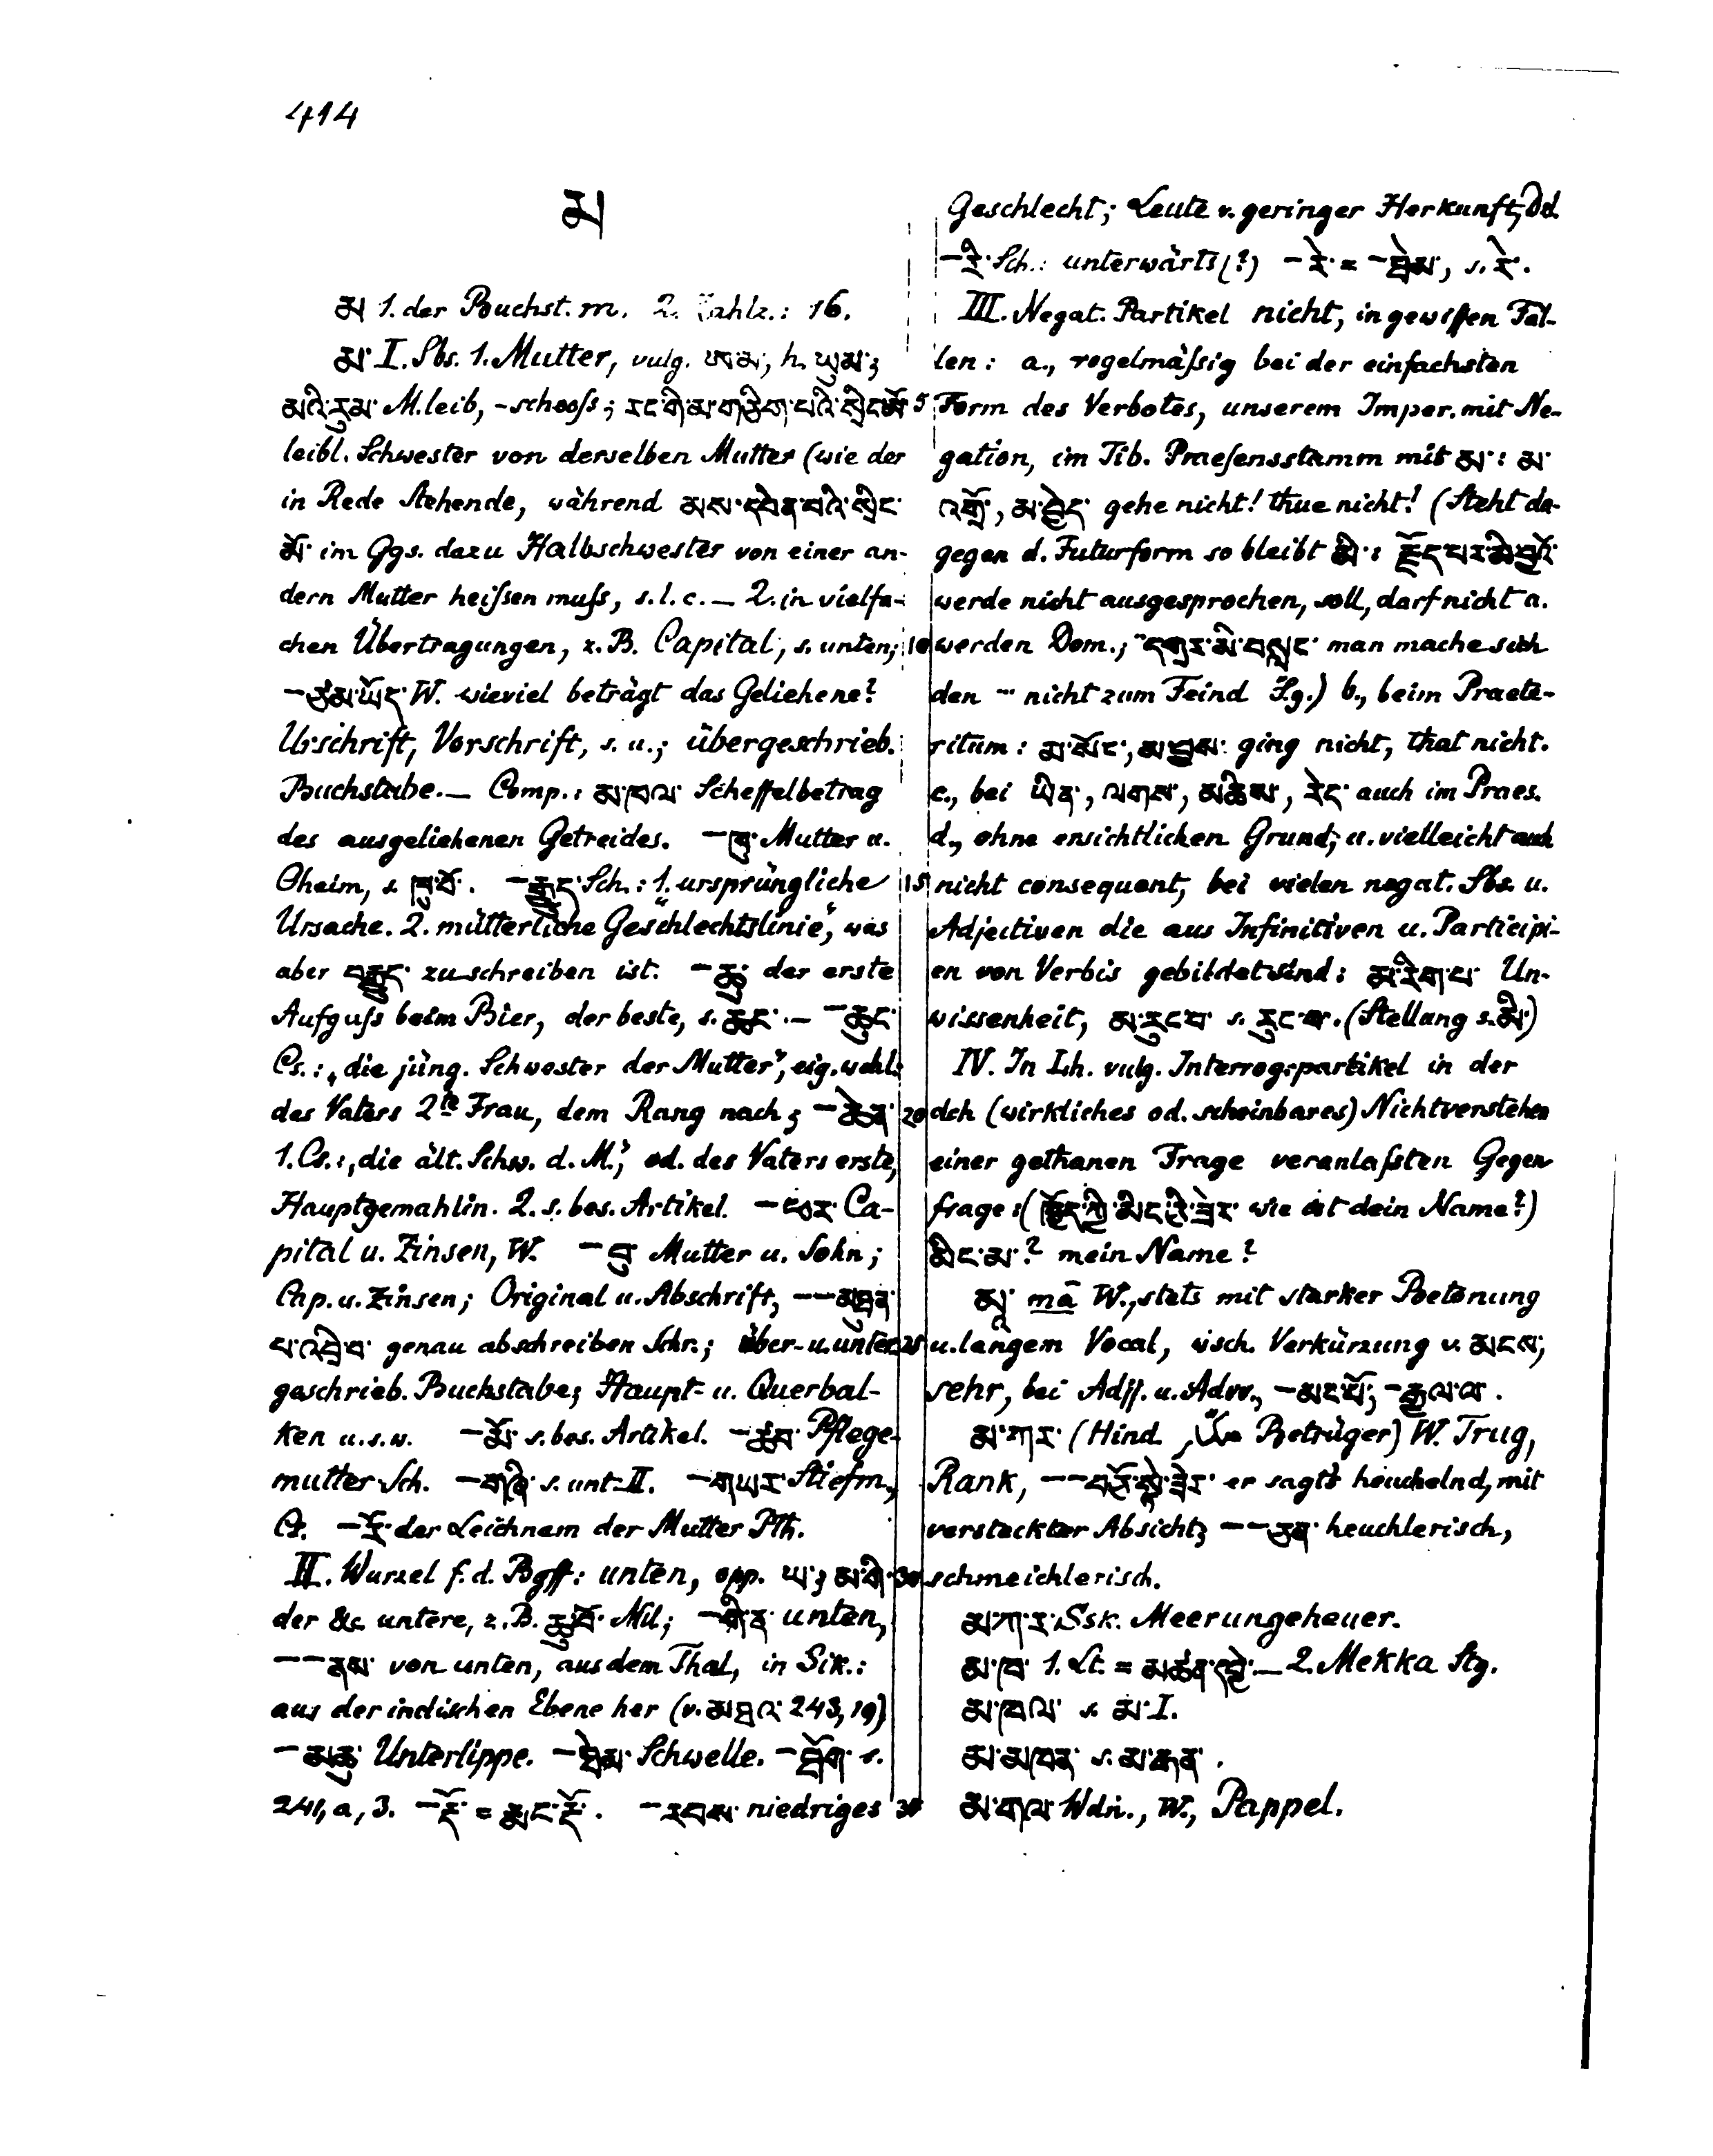 414
མ
མ 1. der Buchst. m. 2. Zahlz.: 16.
མ་ I. Sbs. 1. Mutter, vulg. ཨ་མ་, h. ཡུམ་;
མའི་རུམ་ M.leib, -schooſs; རང་གི་མ་གཅིག་པའི་སྲིང་མོ་
leibl. Schwester von derselben Mutter (wie der
in Rede stehende, während མས་དབེན་བའི་སྲིང་
མོ་ im Ggs. dazu Halbschwester von einer an-
dern Mutter heiſsen muſs, s. l. c. — 2. in vielfa-
chen Übertragungen, z. B. Capital, s. unten;
–ཙམ་ཡོད་ W. wieviel beträgt das Geliehene?
Urschrift, Vorschrift, s. u.; übergeschrieb.
Buchstabe. — Comp.: མ་ཁལ་ Scheffelbetrag
des ausgeliehenen Getreides. –ཁུ་ Mutter u.
Oheim, s. ཁུ་བོ་. –རྒྱུད་ Sch.: 1. „ursprüngliche
Ursache. 2. mütterliche Geschlechtslinie“, was
aber བརྒྱུད་ zu schreiben ist. –ཆུ་ der erste
Aufguſs beim Bier, der beste, s. ཆང་. — –ཆུང་
Cs.: „die jüng. Schwester der Mutter“, eig. wohl:
des Vaters 2te Frau, dem Rang nach; –ཆེན་
1. Cs.: „die ält. Schw. d. M.“, od. des Vaters erste,
Hauptgemahlin. 2. s. bes. Artikel. –དང་ Ca-
pital u. Zinsen, W. –བུ་ Mutter u. Sohn;
Cap. u. Zinsen; Original u. Abschrift, ––མཐུན་
པ་འབྲི་བ་ genau abschreiben Schr.; über- u. unter
geschrieb. Buchstabe; Haupt- u. Querbal-
ken u.s.w. –མོ་ s. bes. Artikel. –ཚབ་ Pflege-
mutter Sch. –གཞི་ s. unt. II. –གཡར་ Stiefm.,
Cs. –རོ་ der Leichnam der Mutter Pth.
II. Wurzel f. d. Bgff: unten, opp. ཡ་; མ་གི་
der &c. untere, z. B. ཆུ་བོ་ Mil; –གི་ན་ unten,
––ནས་ von unten, aus dem Thal, in Sik.:
aus der indischen Ebene her (v. མཐའ་ 243, 19)
–མཆུ་ Unterlippe. –ཐེམ་ Schwelle. –ཐོག་ s.
241, a, 3. –རྡོ་ = རྨང་རྡོ་. –རབས་ niedriges
Geschlecht; Leute v. geringer Herkunft, Dd.
–རི་ Sch.: unterwärts (?) –རེ་ = –ཐེམ་, s. རེ་.
III. Negat. Partikel nicht, in gewiſsen Fäl-
len: a., regelmäſsig bei der einfachsten
5 Form des Verbotes, unserem Imper. mit Ne-
gation, im Tib. Praesensstamm mit མ་: མ་
འགྲོ་, མ་བྱེད་ gehe nicht! thue nicht! (Steht da-
gegen d. Futurform so bleibt མི་: རྗོད་པར་མི་བྱའོ་
werde nicht ausgesprochen, soll, darf nicht a.
10 werden Dom.; ¨དགྲར་མི་བསླང་ man mache sich
den ¨ nicht zum Feind S.g.) b., beim Praete-
ritum: མ་སོང་, མ་བྱས་ ging nicht, that nicht.
c., bei ཡིན་, ལགས་, མཆིས་, རེད་ auch im Praes.
d., ohne ersichtlichen Grund, u. vielleicht auch
15 nicht consequent, bei vielen negat. Sbs. u.
Adjectiven die aus Infinitiven u. Participi-
en von Verbis gebildet sind: མ་རིག་པ་ Un-
wissenheit, མ་རུང་བ་ s. རུང་བ་. (Stellung s. མི་)
IV. In Lh. vulg. Interrog.partikel in der
20 dch (wirkliches od. scheinbares) Nichtverstehen
einer gethanen Frage veranlaſsten Gegen
frage: (ཁྱོད་ཀྱི་མིང་ཅི་ཟེར་ wie ist dein Name?)
མིང་མ་? mein Name?
མཱ་ mā W., stets mit starker Betonung
25 u. langem Vocal, wsch. Verkürzung v. མངས་,
sehr, bei Adjj. u. Advv., –མང་པོ་, –རྒྱལ་བ་.
མ་ཀར་ (Hind. مکر Betrüger) W. Trug,
Rank, ––བཅོས་ཏེ་ཟེར་ er sagts heuchelnd, mit
versteckter Absicht; ––ཅན་ heuchlerisch,
30 schmeichlerisch.
མ་ཀ་ར་ Ssk. Meerungeheuer.
མ་ཁ་ 1. Lt. = མཚན་དབྱེ་ — 2. Mekka Stg.
མ་ཁལ་ s. མ་ I.
མ་མཁན་ s. མ་རྒན་.
35 མ་གལ་ Wdn., W., Pappel.